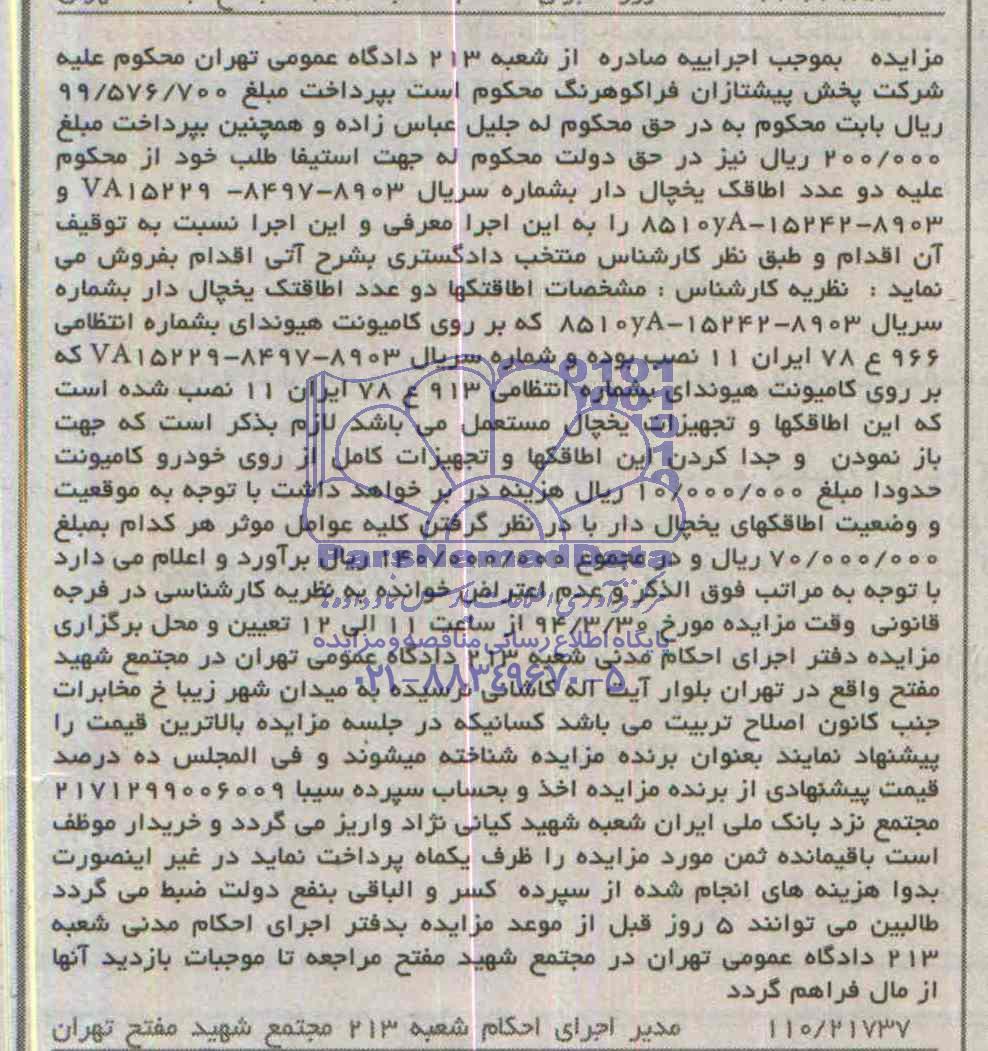 مزایده بموجب اجراییه صادره از شعبه ۲۱۳ دادگاه عمومی تهران محکوم علیه
شرکت پخش پیشتازان فراکوهرنگ محکوم است بپرداخت مبلغ ۹۹/۵۷۶/۷۰۰
ریال بابت محکوم به در حق محکوم له جلیل عباس زاده و همچنین بپرداخت مبلغ
۲۰۰/۰۰۰ ریال نیز در حق دولت محکوم له جهت استیفا طلب خود از محکوم
علیه دو عدد اطاقک یخچال دار بشماره سریال ۸۹۰۳-۸۴۹۷- VA۱۵۲۲۹ و
۸۹۰۳-۱۵۲۴۲-۸۵۱۰yA را به این اجرا معرفی و این اجرا نسبت به توقیف
آن اقدام و طبق نظر کارشناس منتخب دادگستری بشرح آتی اقدام بفروش می
نماید : نظریه کارشناس : مشخصات اطاقتکها دو عدد اطاقتک یخچال دار بشماره
سریال ۸۹۰۳-۱۵۲۴۲-۸۵۱۰yA که بر روی کامیونت هیوندای بشماره انتظامی
۹۶۶ ع ۷۸ ایران ۱۱ نصب بوده و شماره سریال ۸۹۰۳-۸۴۹۷-VA۱۵۲۲۹ که
بر روی کامیونت هیوندای بشماره انتظامی ۹۱۳ ع ۷۸ ایران ۱۱ نصب شده است
که این اطاقکها و تجهیزات یخچال مستعمل می باشد لازم بذکر است که جهت
باز نمودن و جدا کردن این اطاقکها و تجهیزات کامل از روی خودرو کامیونت
حدودا مبلغ ۱۰/۰۰۰/۰۰۰ ریال هزینه در بر خواهد داشت با توجه به موقعیت
و وضعیت اطاقکهای یخچال دار با در نظر گرفتن کلیه عوامل موثر هر کدام بمبلغ
۷۰/۰۰۰/۰۰۰ ریال و در مجموع ۱۴۰/۰۰۰/۰۰۰ ریال برآورد و اعلام می دارد
ParsNamadData
با توجه به مراتب فوق الذکر و عدم اعتراض خوانده به نظریه کارشناسی در فرجه
قانونی وقت مزایده مورخ ۹۴/۳/۳۰ از ساعت ۱۱ الی ۱۲ تعیین و محل برگزاری
پایگاه اطلاع رسانی مناقصه و مزایده
مزایده دفتر اجرای احکام مدنی شعبه ۲۱۳ دادگاه عمومی تهران در مجتمع شهید
۰۲۱-۸۸۳۴۹۶۷۰-۵
مفتح واقع در تهران بلوار آیت اله کاشانی نرسیده به میدان شهر زیبا خ مخابرات
جنب کانون اصلاح تربیت می باشد کسانیکه در جلسه مزایده بالاترین قیمت را
پیشنهاد نمایند بعنوان برنده مزایده شناخته میشوند و فی المجلس ده درصد
قیمت پیشنهادی از برنده مزایده اخذ و بحساب سپرده سیبا ۲۱۷۱۲۹۹۰۰۶۰۰۹
مجتمع نزد بانک ملی ایران شعبه شهید کیانی نژاد واریز می گردد و خریدار موظف
است باقیمانده ثمن مورد مزایده را ظرف یکماه پرداخت نماید در غیر اینصورت
بدوا هزینه های انجام شده از سپرده کسر و الباقی بنفع دولت ضبط می گردد
طالبین می توانند ۵ روز قبل از موعد مزایده بدفتر اجرای احکام مدنی شعبه
۲۱۳ دادگاه عمومی تهران در مجتمع شهید مفتح مراجعه تا موجبات بازدید آنها
از مال فراهم گردد
۱۱۰/۲۱۷۳۷ مدیر اجرای احکام شعبه ۲۱۳ مجتمع شهید مفتح تهران